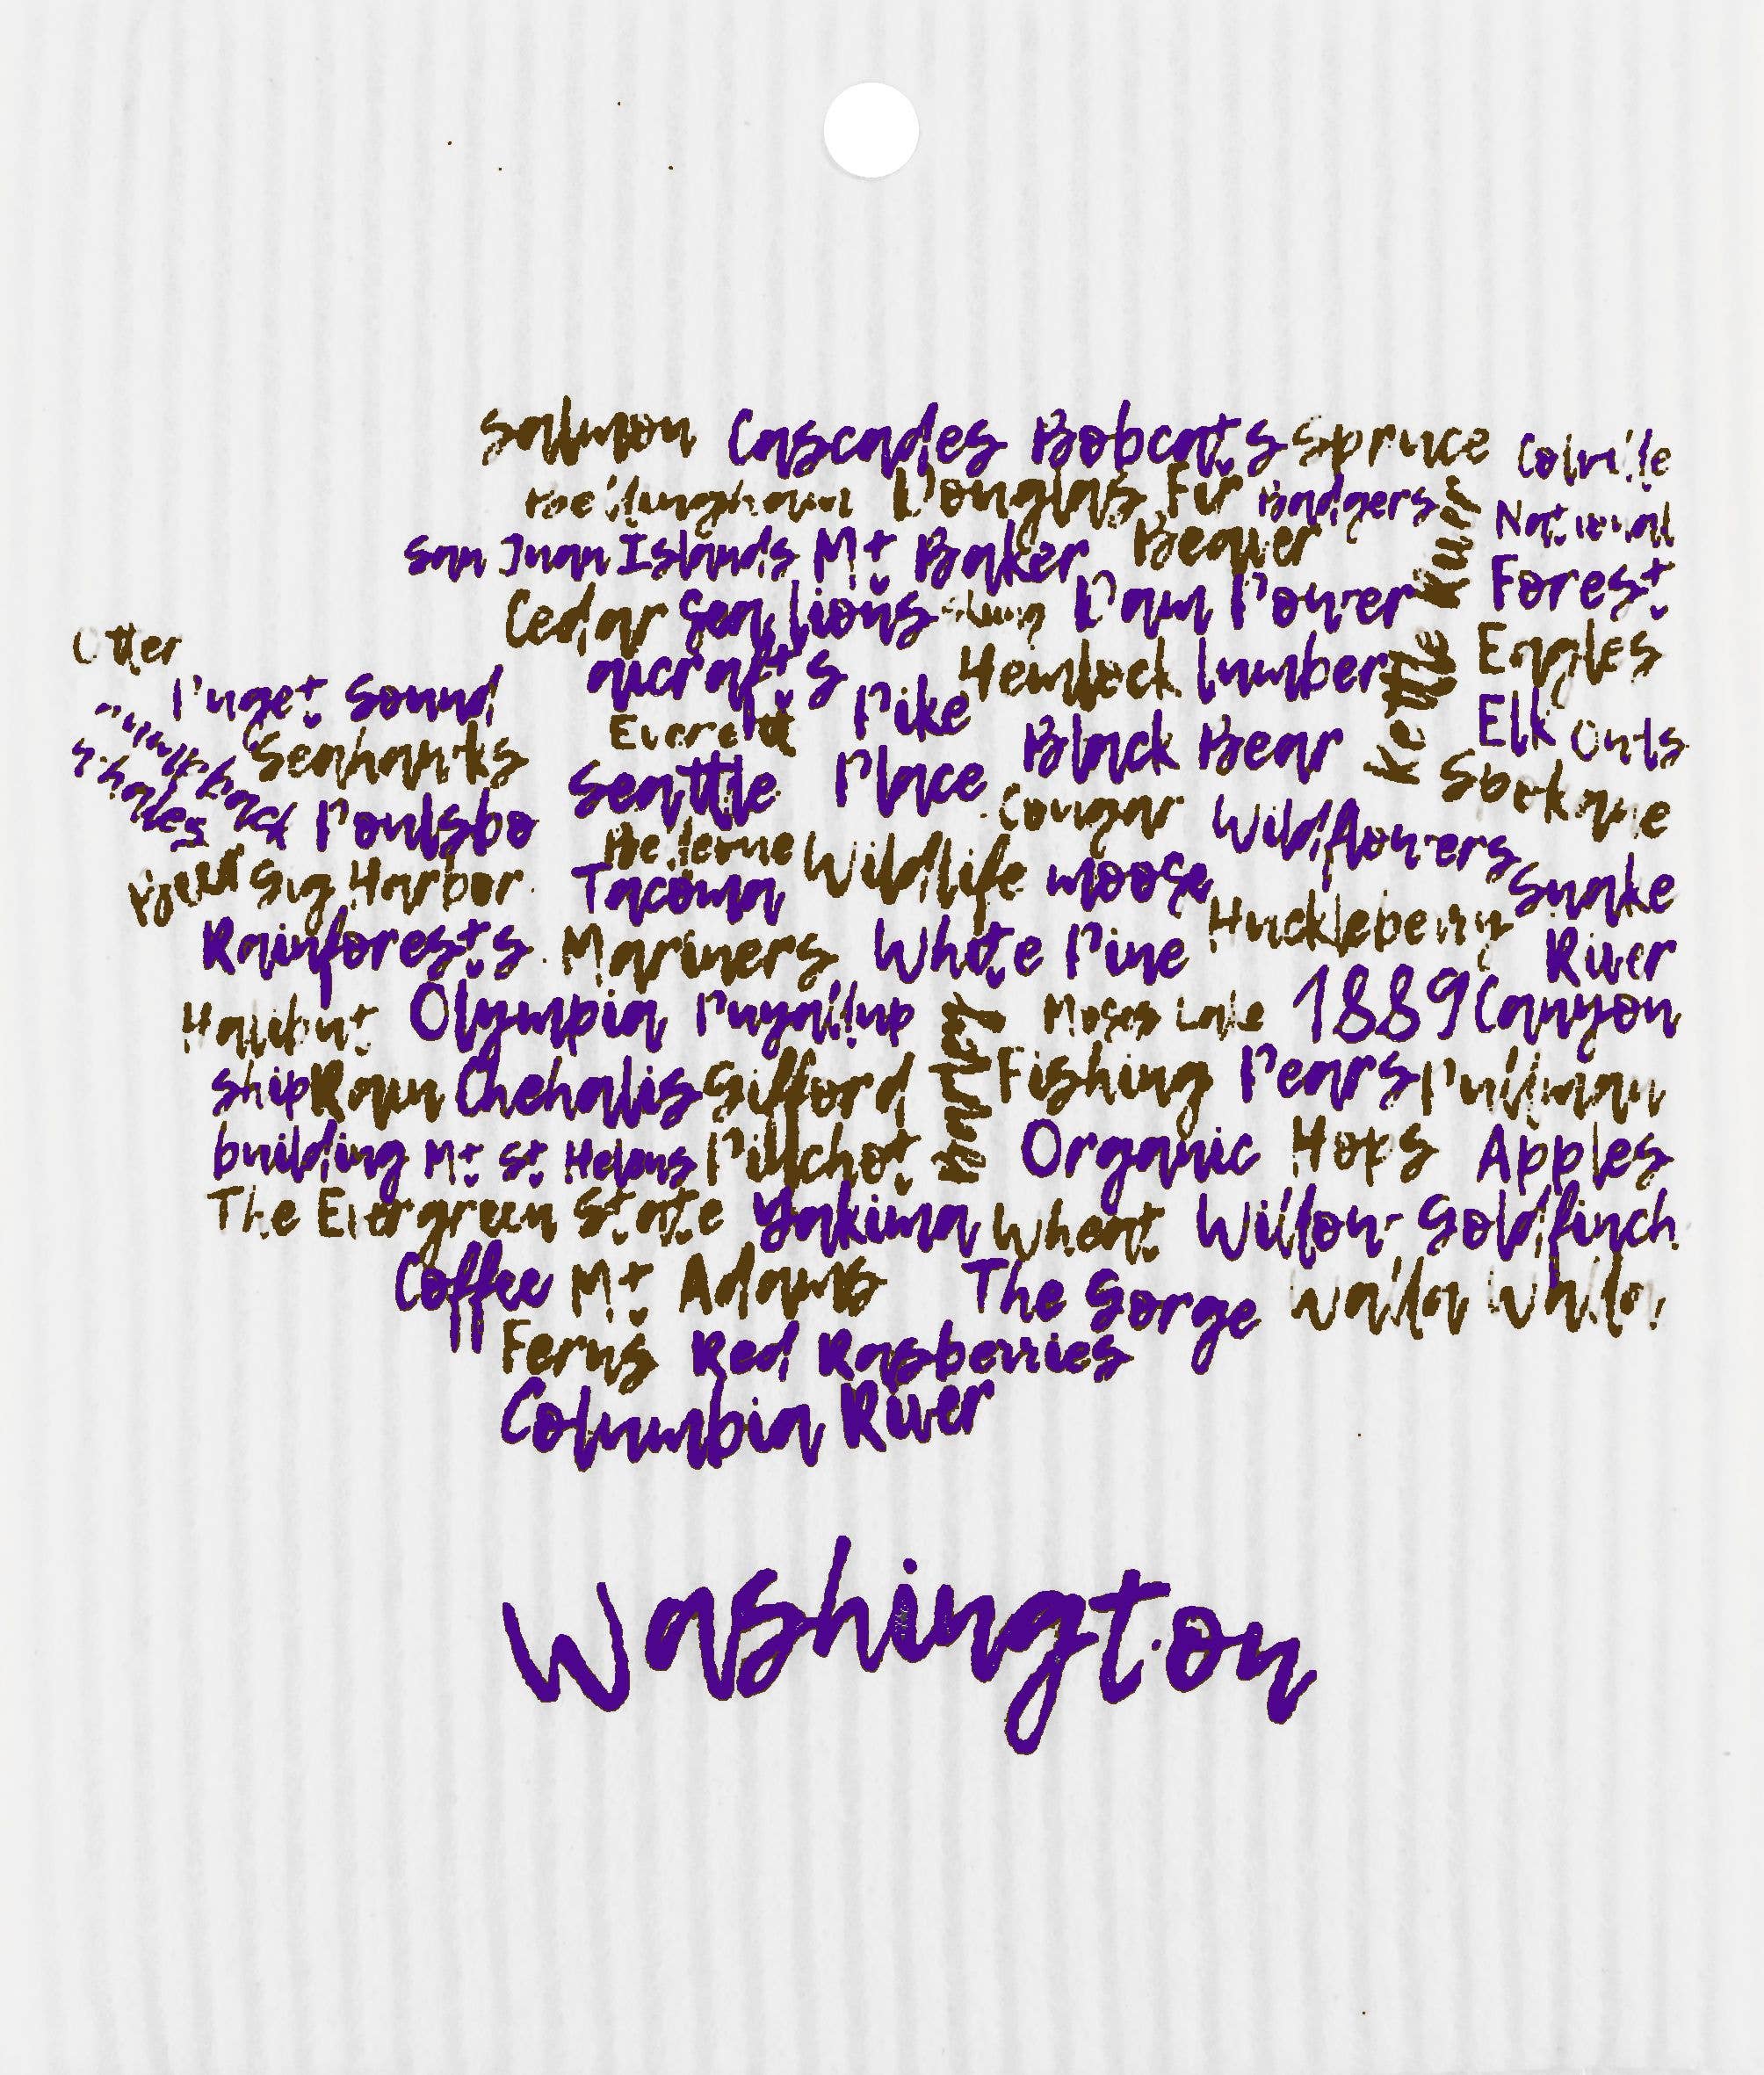 Salmon Cascades Bobcats Spruce Colville
Bellingham Douglas Fir Badgers National
San Juan Islands Mt Baker Beaver Forest
Cedar Sea Lions Dam Power Kettle River
Otter aicrafts Hemlock lumber Eagles
Puget Sound Everett Pike Elk Oats
Humpback Seahawks Black Bear
whales Poulsbo Seattle Place Cougar Spokane
Bellevue Wildlife Wildflowers
Gig Harbor Tacoma moose Snake
Rainforests Mariners White Pine Huckleberry River
Halibut Olympia Puyallup Moses Lake 1889 Canyon
Ship Rain Chehalis Gifford Barley Fishing Pears Pullman
building Mt St Helens Pinchot Organic Hops Apples
The Evergreen State Yakima Wheat Willow Goldfinch
Coffee Mt Adams The Gorge Walla Walla
Ferns Red Rasberries
Columbia River
Washington